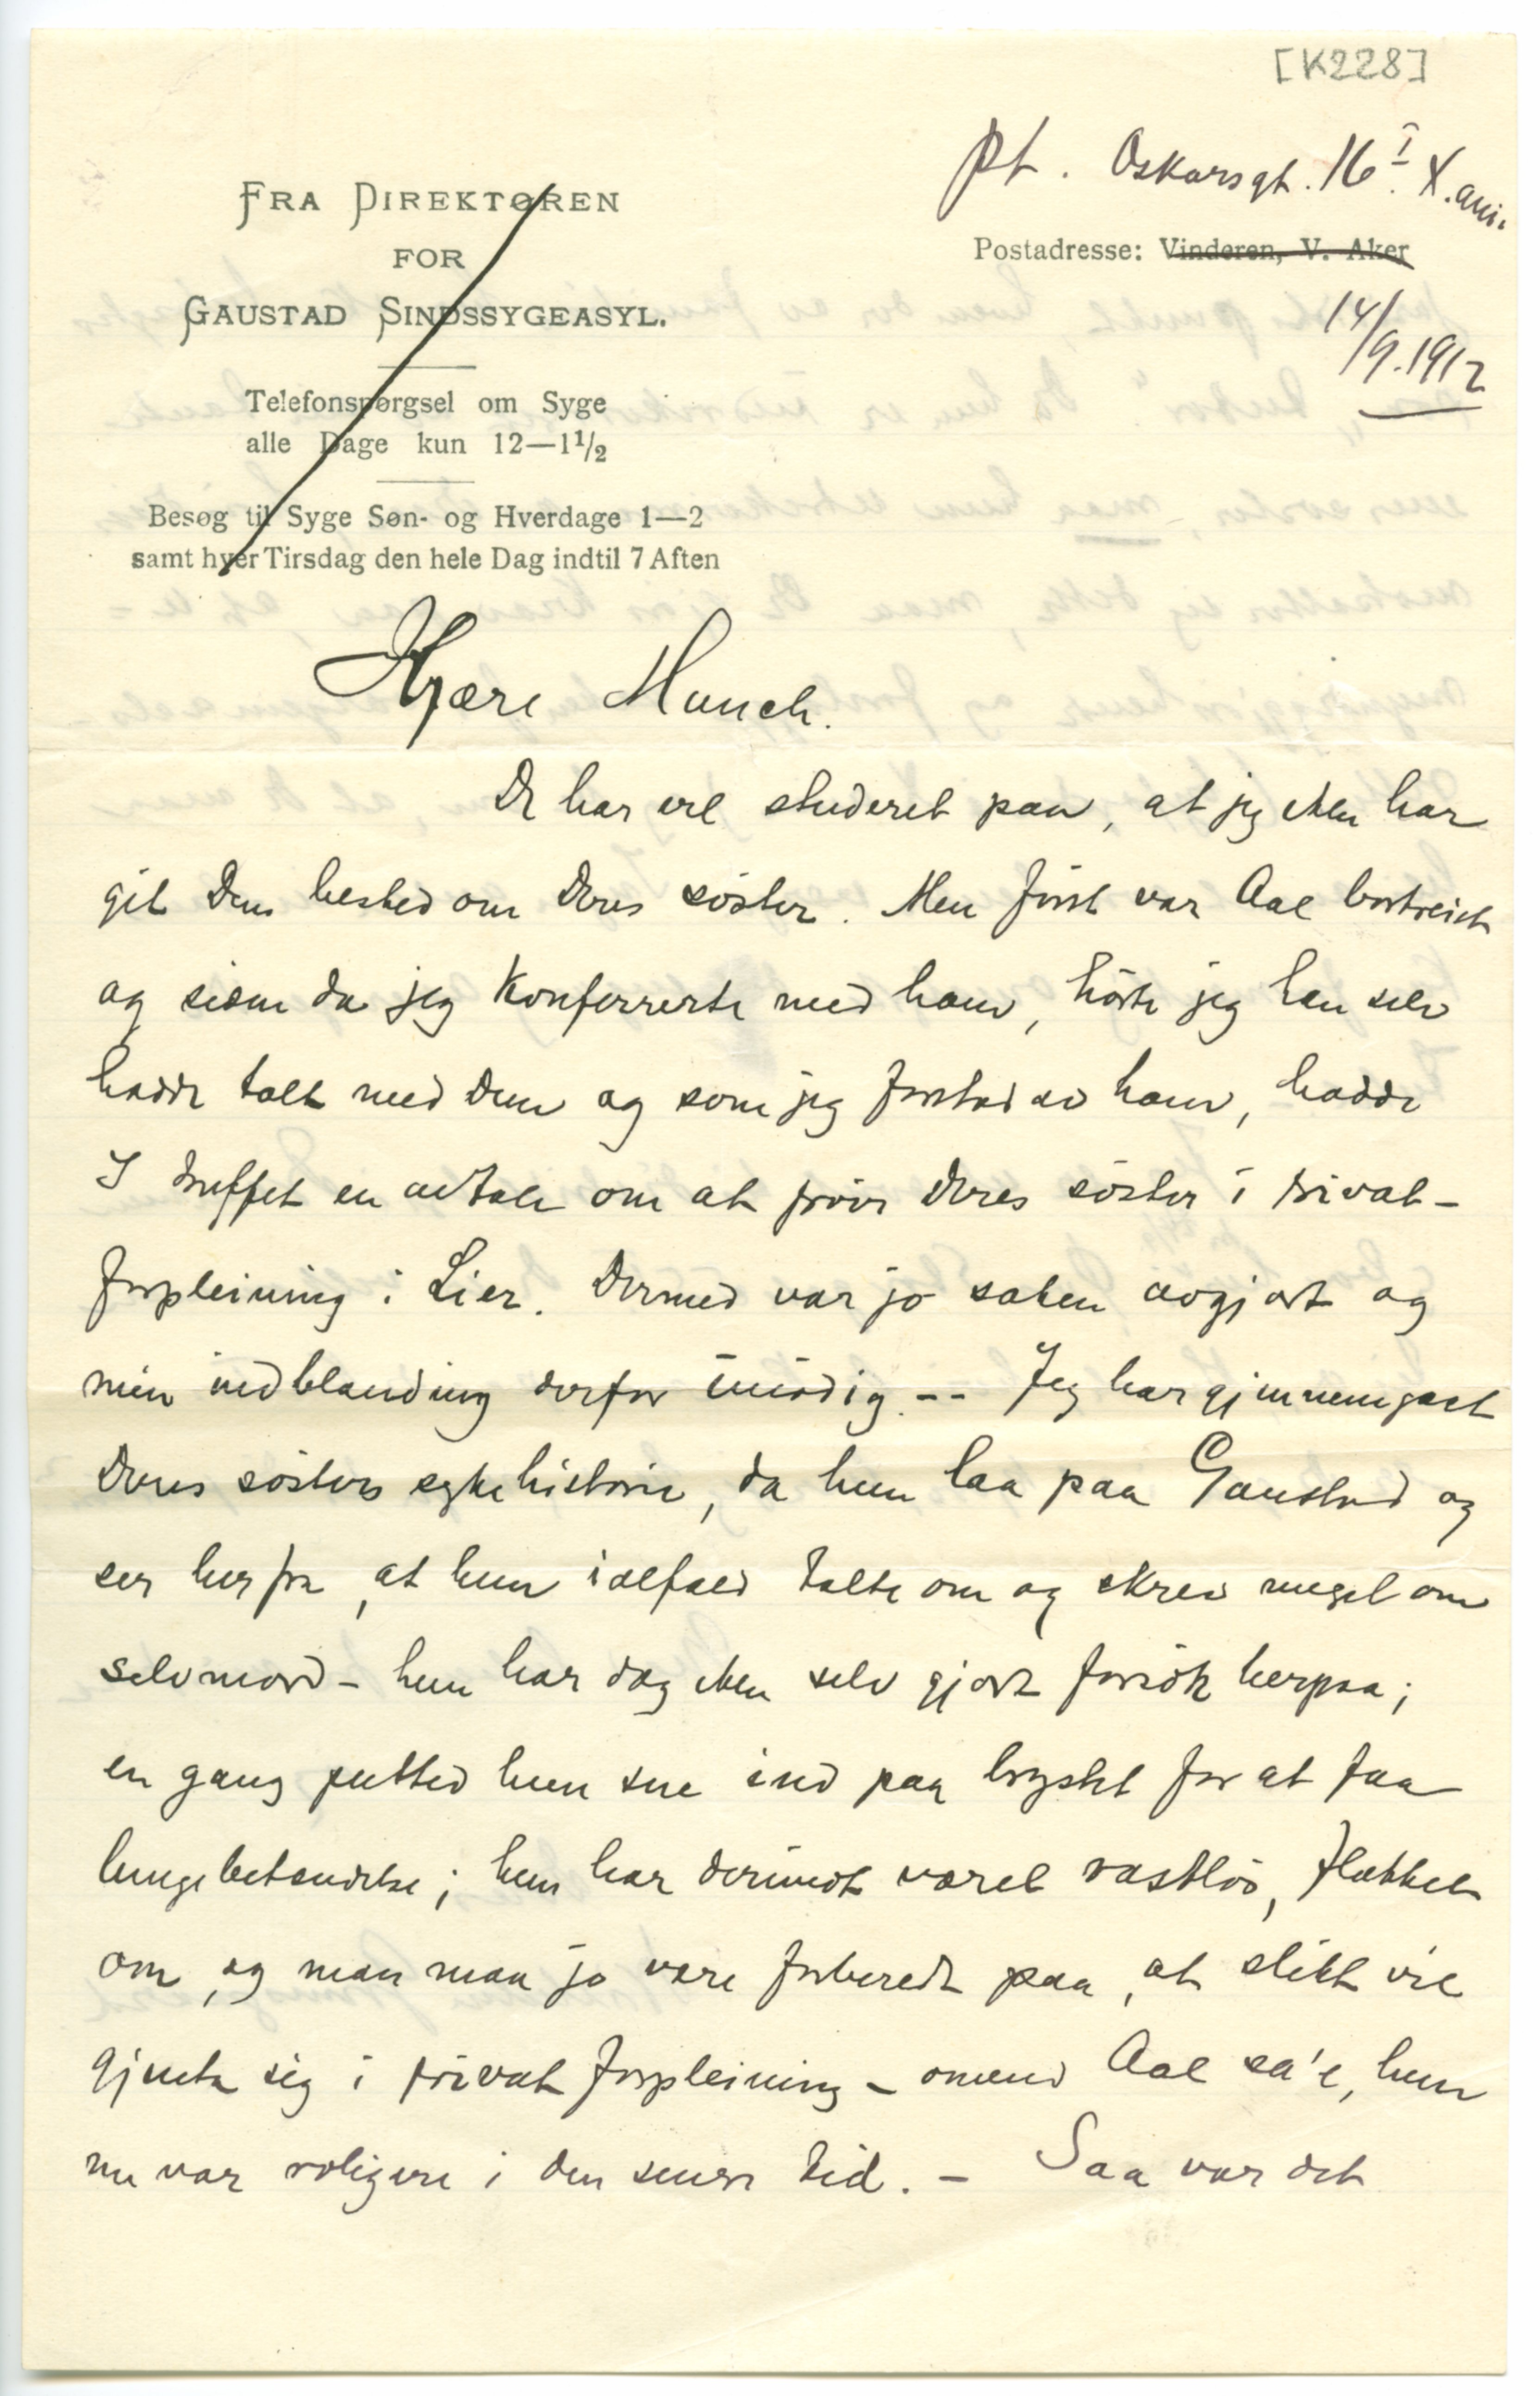 [K228]
pt. Oskarsgt. 16 I. X.ania
FRA DIREKTØREN
FOR
GAUSTAD SINDSSYGEASYL.
Postadresse: Vinderen, V. Aker
14/9.1912
Telefonspørgsel om Syge
alle Dage kun 12—1½
Besøg til Syge Søn- og Hverdage 1—2
samt hver Tirsdag den hele Dag indtil 7 Aften
Kjære Munch.
De har vel studeret paa, at jeg ikke har
git Dem besked om Deres søster. Men først var Aal bortreist
og siden da jeg konfererte med ham, hørte jeg han selv
hadde talt med Dem og som jeg forstod av ham, hadde
I truffet en avtale om at prøve Deres søster i privat-
forpleining i Lier. Dermed var jo saken avgjort og
min indblanding derfor unødig. -- Jeg har gjennemgaat
Deres søsters sykehistorie, da hun laa paa Gaustad og
ser herfra, at hun ialfald talte om og skrev meget om
selvmord - hun har dog ikke selv gjort forsøk herpaa;
en gang putted hun sne ind paa brystet for at faa
lungebetændelse; hun har derimot været rastløs, flakket
om, og man maa jo være forberedt paa, at slikt vil
gjenta sig i privat forpleining - omend Aal sa'e, hun
nu var roligere i den senere tid. - Saa var det